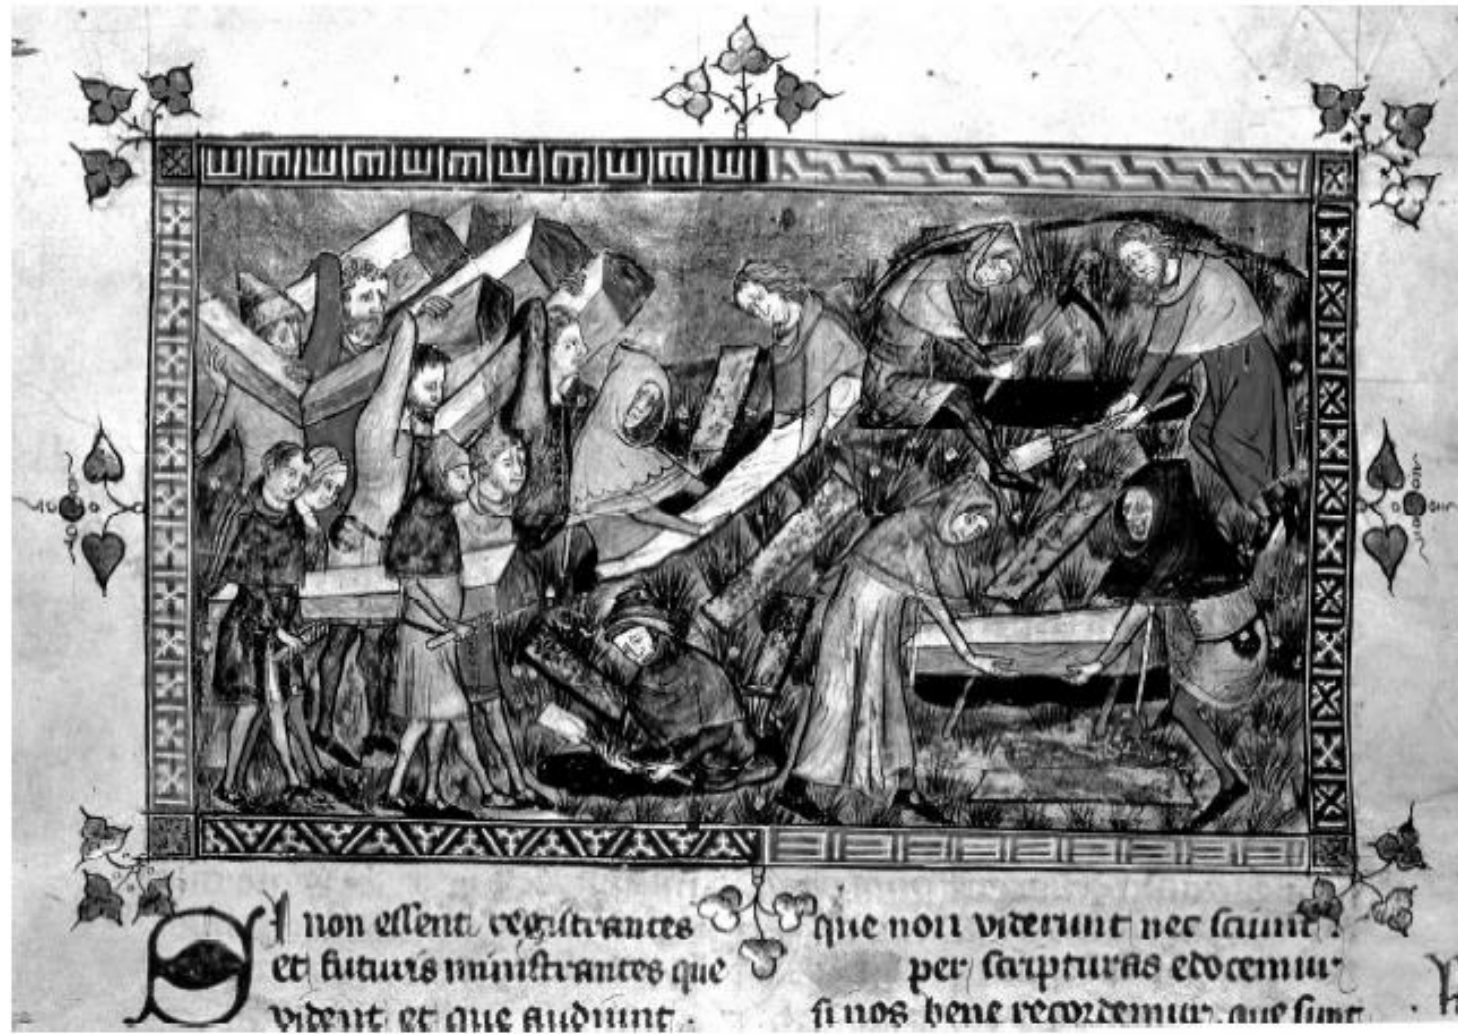 SI non essent registrantes
et futuris ministrantes que
vident et que audiunt .
que non viderunt nec sciunt .
per scripturas edocemur
si nos bene recordemur que sunt